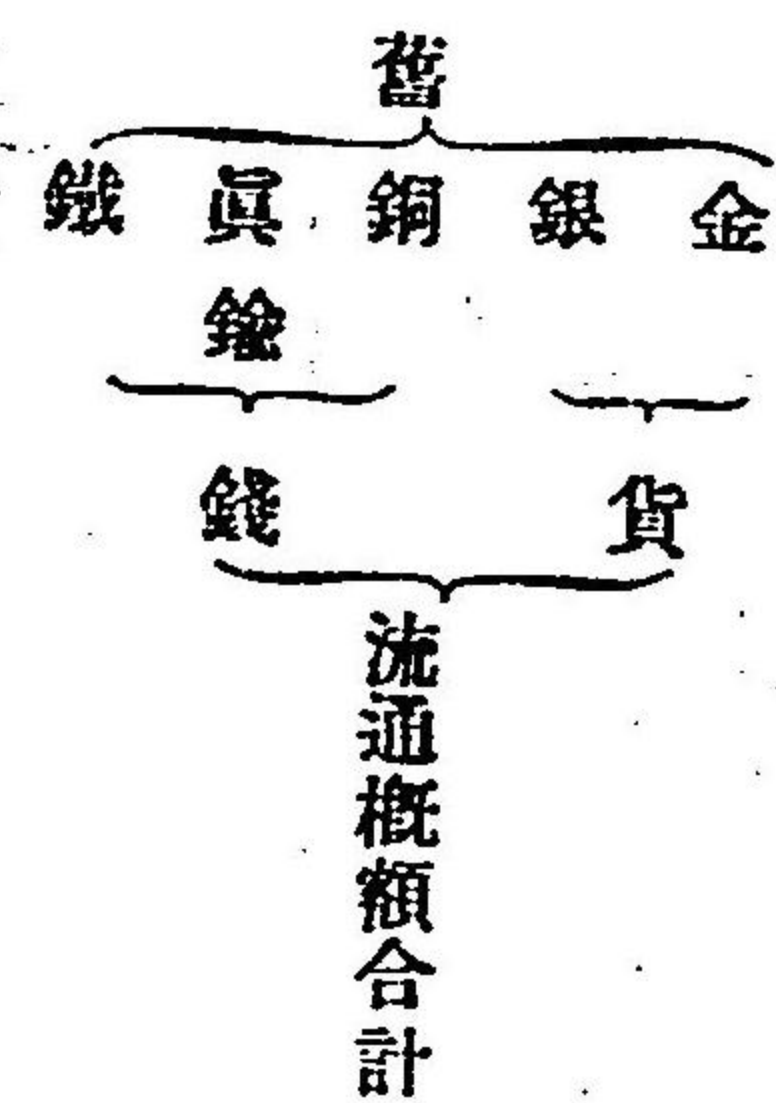 舊
金
銀
銅
眞鍮
鐵
貨
錢
流通概額合計